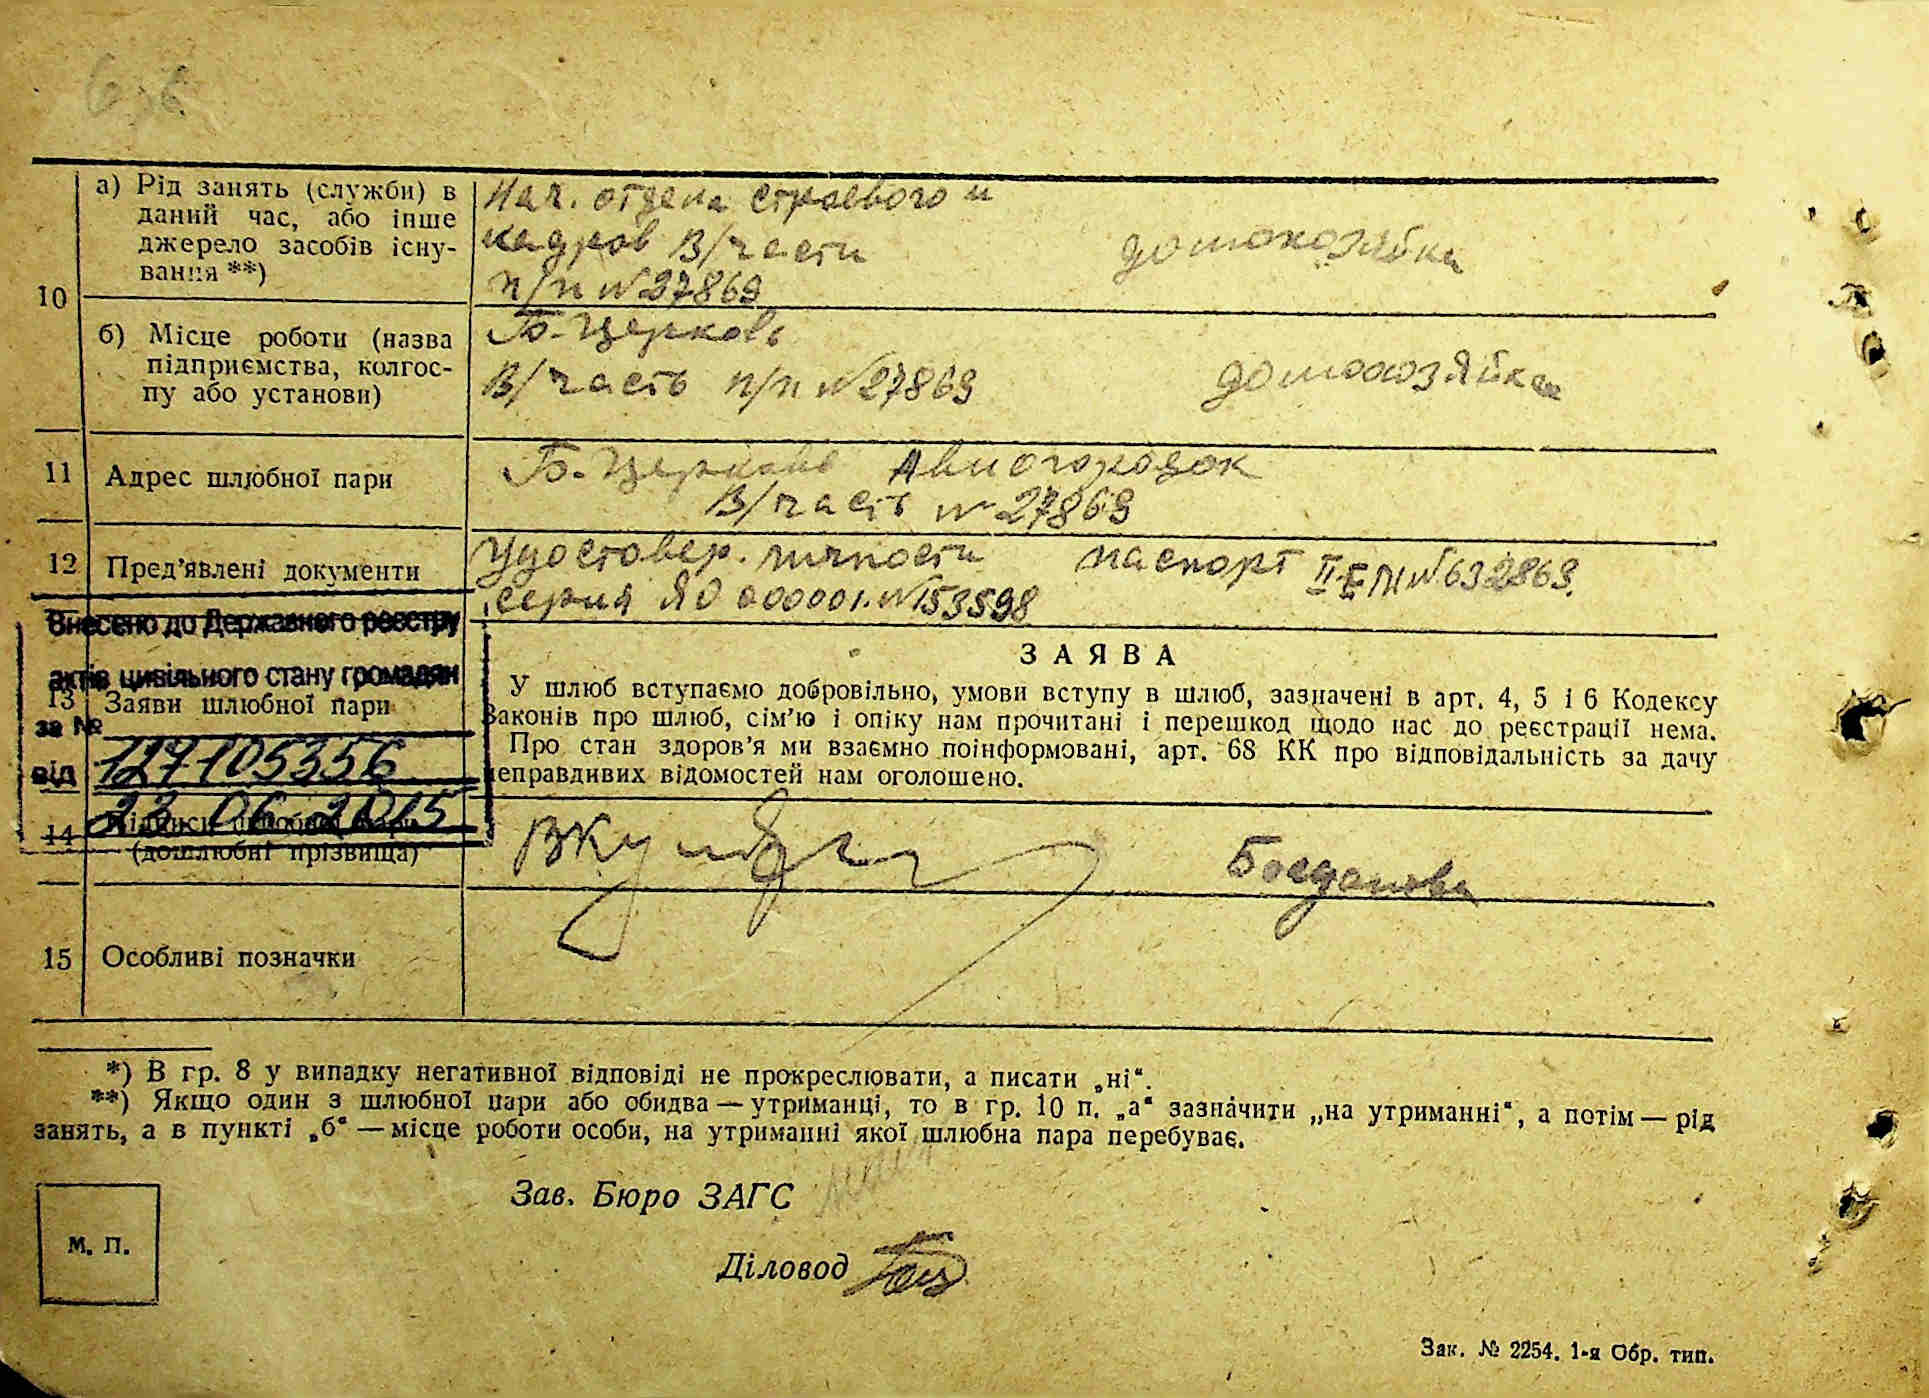 10
а) Рід занять (служби) в
даний час, або інше
джерело засобів існу-
вання **)
Нач. отдела строевого и
кадров В/части
п/п №27869
домохозяйка
б) Місце роботи (назва
підприємства, колгос-
пу або установи)
Б-Церковь
В/часть п/п №27869
домохозяйка
11 Адрес шлюбної пари
Б-Церковь Авиогородок
В/часть №27869
12 Пред’явлені документи
Удостовер. личности
серия ЯО 000001.№153598
паспорт №632869.
Внесено до Державного реєстру
актів цивільного стану громадян
за № 127105356
від 23 06 2015
13 Заяви шлюбної пари
ЗАЯВА
У шлюб вступаємо добровільно, умови вступу в шлюб, зазначені в арт. 4, 5 і 6 Кодексу
Законів про шлюб, сім’ю і опіку нам прочитані і перешкод щодо нас до реєстрації нема.
Про стан здоров’я ми взаємно поінформовані, арт. 68 КК про відповідальність за дачу
неправдивих відомостей нам оголошено.
14 Підписи шлюбної пари
(дошлюбні прізвища)
Богданова
15 Особливі позначки
*) В гр. 8 у випадку негативної відповіді не прокреслювати, а писати „ні“.
**) Якщо один з шлюбної пари або обидва — утриманці, то в гр. 10 п. „а“ зазначити „на утриманні“, а потім — рід
занять, а в пункті „б“ — місце роботи особи, на утриманні якої шлюбна пара перебуває.
Зав. Бюро ЗАГС
Діловод
М. П.
Зак. № 2254. 1-я Обр. тип.